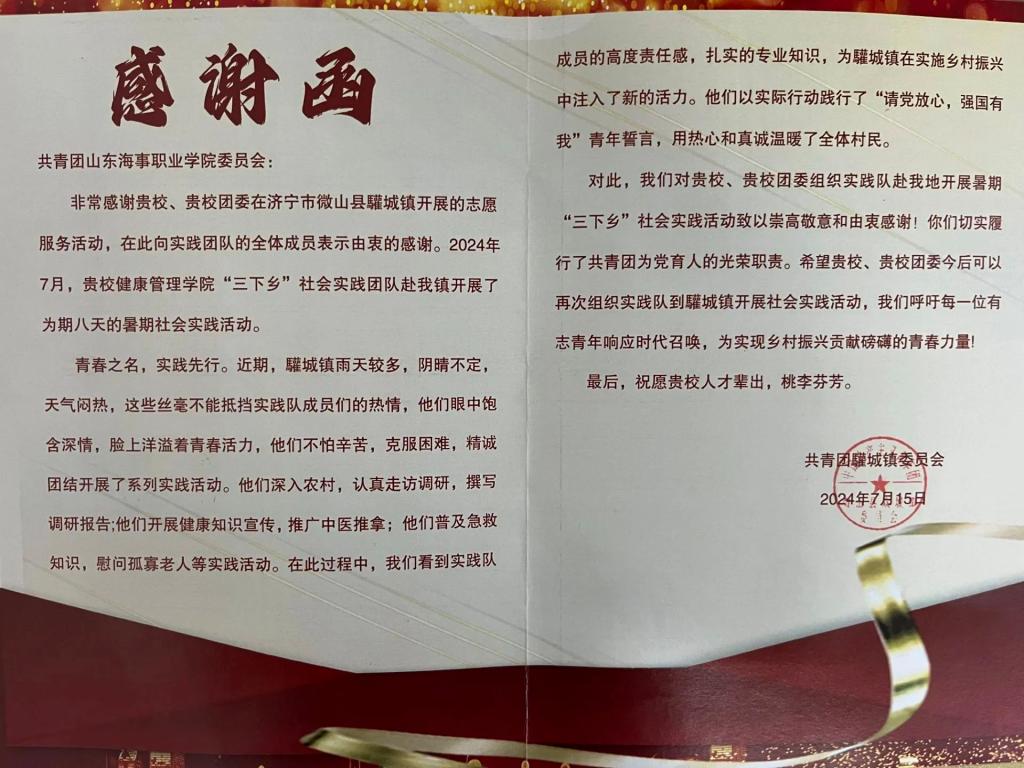 感谢函
共青团山东海事职业学院委员会：
非常感谢贵校、贵校团委在济宁市微山县驩城镇开展的志愿
服务活动，在此向实践团队的全体成员表示由衷的感谢。2024年
7月，贵校健康管理学院“三下乡”社会实践团队赴我镇开展了
为期八天的暑期社会实践活动。
青春之名，实践先行。近期，驩城镇雨天较多，阴晴不定，
天气闷热，这些丝毫不能抵挡实践队成员们的热情，他们眼中饱
含深情，脸上洋溢着青春活力，他们不怕辛苦，克服困难，精诚
团结开展了系列实践活动。他们深入农村，认真走访调研，撰写
调研报告;他们开展健康知识宣传，推广中医推拿；他们普及急救
知识，慰问孤寡老人等实践活动。在此过程中，我们看到实践队
成员的高度责任感，扎实的专业知识，为驩城镇在实施乡村振兴
中注入了新的活力。他们以实际行动践行了“请党放心，强国有
我”青年誓言，用热心和真诚温暖了全体村民。
对此，我们对贵校、贵校团委组织实践队赴我地开展暑期
“三下乡”社会实践活动致以崇高敬意和由衷感谢！你们切实履
行了共青团为党育人的光荣职责。希望贵校、贵校团委今后可以
再次组织实践队到驩城镇开展社会实践活动，我们呼吁每一位有
志青年响应时代召唤，为实现乡村振兴贡献磅礴的青春力量！
最后，祝愿贵校人才辈出，桃李芬芳。
共青团驩城镇委员会
2024年7月15日